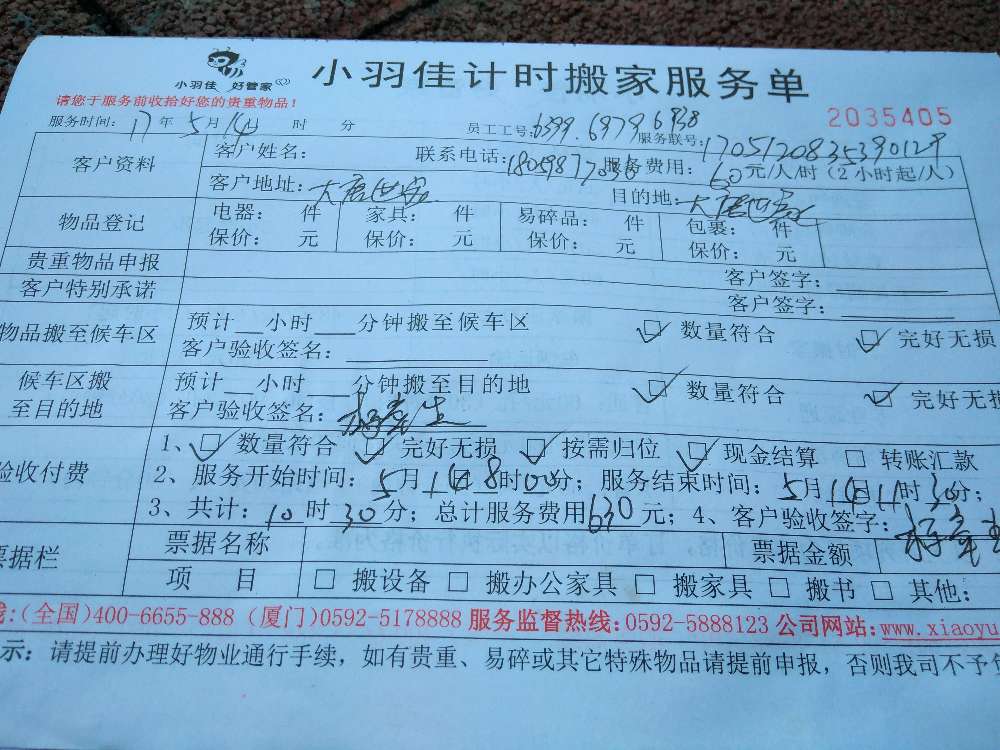 小羽佳 好管家
小羽佳计时搬家服务单
请您于服务前收拾好您的贵重物品！
2035405
服务时间：17年5月14 时 分 员工工号：6399.6979 6938 服务联号：1705120835390129
客户资料 客户姓名： 联系电话：服务费用：60元/人/时（2小时起/人）
客户地址：大唐世家 目的地：大唐世家
物品登记 电器： 件 家具： 件 易碎品： 件 包裹： 件
保价： 元 保价： 元 保价： 元 保价： 元
贵重物品申报 客户签字：
客户特别承诺 客户签字：
物品搬至候车区 预计__小时___分钟搬至候车区 ☑ 数量符合 ☑ 完好无损
客户验收签名：
候车区搬至目的地 预计__小时___分钟搬至目的地 ☑ 数量符合 ☑ 完好无损
客户验收签名：
验收付费 1、☑ 数量符合 ☑ 完好无损 ☑ 按需归位 ☑ 现金结算 □ 转账汇款
2、服务开始时间：5月14 8时00分；服务结束时间：5月14日11时30分；
3、共计：10时30分；总计服务费用630元；4、客户验收签字：
票据栏 票据名称 票据金额
项 目 □ 搬设备 □ 搬办公家具 □ 搬家具 □ 搬书 □ 其他：
线：(全国)400-6655-888 (厦门)0592-5178888 服务监督热线：0592-5888123 公司网站：www.xiaoyu
示：请提前办理好物业通行手续，如有贵重、易碎或其它特殊物品请提前申报，否则我司不予